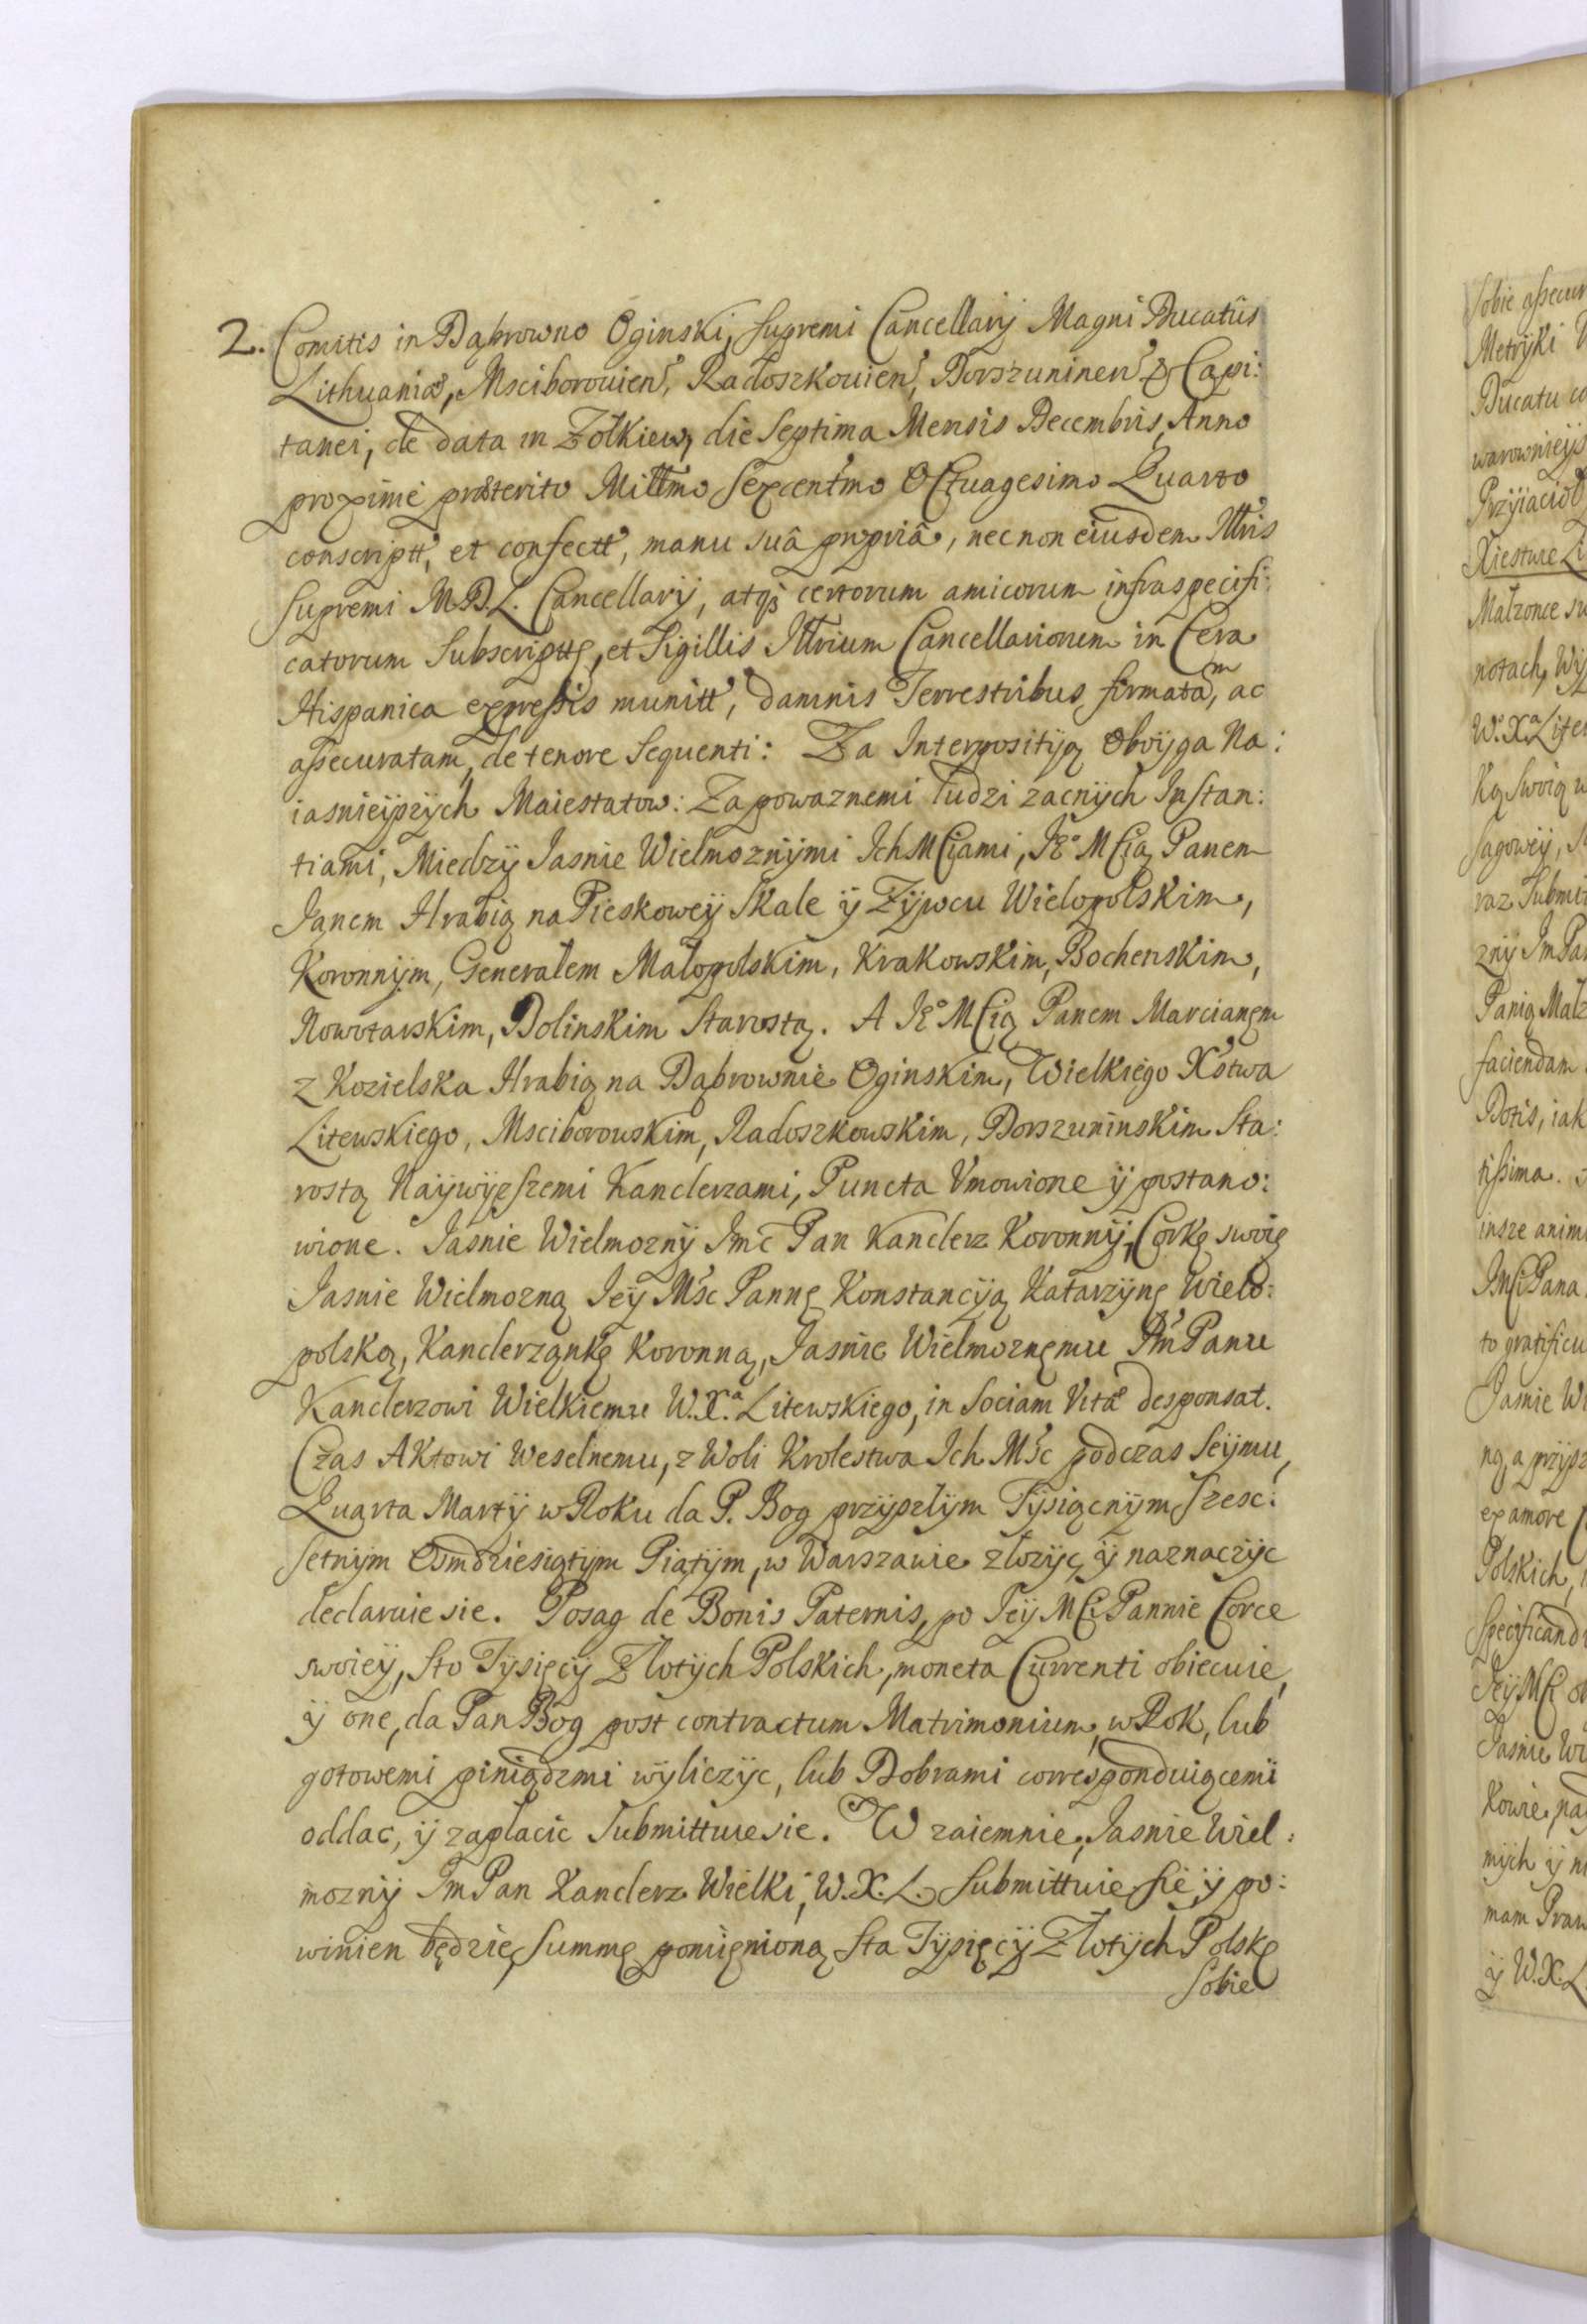 2. Comitis in Dąbrowno Oginski, Supremi Cancellarij Magni Ducatûs
Lithuaniæ, Msciborouien, Radoszkouien, Dorszuninen & Capi:
tanei, de data in Zołkiew, die Septima Mensis Decembris, Anno
proximè præterito Millmo Sexcentmo Octuagesimo Quarto
conscriptt, et confectt, manu suâ propriâ, nec non eiusdem Illris
Supremi M.D.L. Cancellarij, atqȝ certorum amicorum infraspecifi:
catorum Subscriptt, et Sigillis Illrium Cancellariorum in Cera
Hispanica expressis munitt, damnis Terrestribus firmatam, ac
assecuratam, de tenore Sequenti: Za Interpositÿą Oboÿga Na:
iasnieÿszÿch Maiestatow: Za powaznemi ludzi zacnÿch Instan:
tiami, Miedzÿ Jasnie Wielmoznÿmi Ich MCiami, Je⁰ MCią Panem
Janem Hrabią na Pieskoweÿ Skale ÿ Zÿwcu Wielopolskim,
Koronnÿm, Generałem Małopolskim, Krakowskim, Bochenskim,
Nowotarskim, Dolinskim Starostą. A Je⁰ MCią Panem Marcianem
z Kozielska Hrabią na Dąbrownie Oginskim, Wielkiego Xstwa
Litewskiego, Msciborowskim, Radoszkowskim, Dorszuninskim Sta:
rostą Naÿwÿeszemi Kanclerzami, Puncta Vmowione ÿ postano:
wione. Jasnie Wielmoznÿ Jmc Pan Kanclerz Koronnÿ, Corkę swoię
Jasnie Wielmozną Jeÿ Msc Pannę Konstancÿą Katarzÿnę Wielo:
polską, Kanclerzankę Koronną, Jasnie Wielmoznemu Jm Panu
Kanclerzowi Wielkiemu W.X.ª Litewskiego, in Sociam Vitæ desponsat.
Czas Aktowi Weselnemu, z Woli Krolestwa Ich Msc podczas Seÿmu,
Quarta Martÿ w Roku da P. Bog przÿszlÿm Tÿsiącnÿm Szesc:
setnÿm Osmdziesiątÿm Piątÿm, w Warszawie złozÿc, ÿ naznaczÿc
declaruie sie. Posag de Bonis Paternis, po Jeÿ MCi Pannie Corce
swoieÿ, Sto Tÿsięcÿ Złotÿch Polskich, moneta Currenti obiecuie,
ÿ one, da Pan Bog post contractum Matrimonium, w Rok, lub
gotowemi piniądzmi wÿliczÿc, lub Dobrami corresponduiącemi
oddac, ÿ zapłacic Submittuie sie. Wzaiemnie, Jasnie Wiel:
moznÿ Jm Pan Kanclerz Wielki, W.X.L. Submittuie się, ÿ po:
winien będzie, Summę pomienioną Sta Tÿsięcÿ Złotÿch Polskᷓ
Sobie
Sobie assecur
Metrÿki
Ducatu co
warownieÿs
Przÿiacioł
Xiestwie Li
Małzonce sw
notach, Wÿ
W.X.ª Litew
Ką swoią w
sagoweÿ,
raz Submit
znÿ Jm Pan
Panią Małz
faciendam
Dotis, iak
tissima.
insze anim
JMCi Pana
to gratificu
Jasnie Wi
ną, a przÿsz
ex amore
Polskich,
Specificand
Jeÿ MCi
Jasnie Wi
Kowie,
mÿch ÿ
mam Praw
ÿ W.X.L.